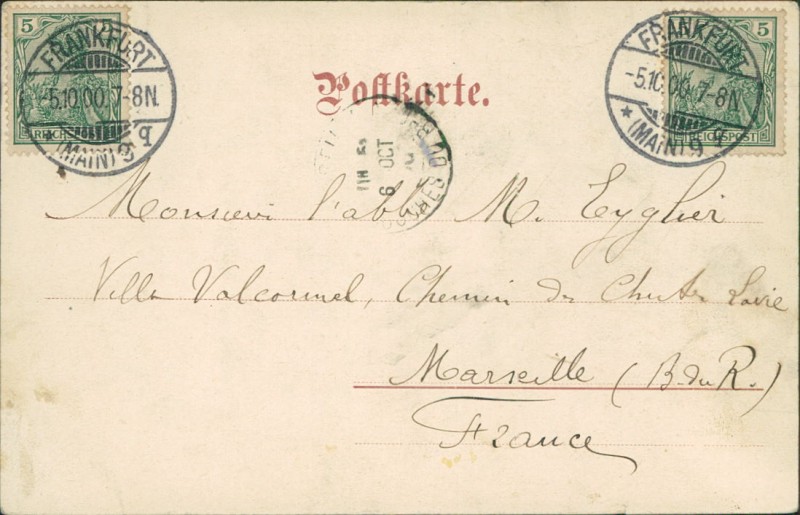 5
5
FRANKFURT
-5.10.00. 7-8N.
(MAIN) 9
FRANKFURT
-5.10.00. 7-8N.
* (MAIN) 9
REICHSPOST
Postkarte.
6 OCT
DU RH
Monsieur l'abbé M. Eyglier
Villa Valcormel, Chemin des
Marseille (B. du R.)
France